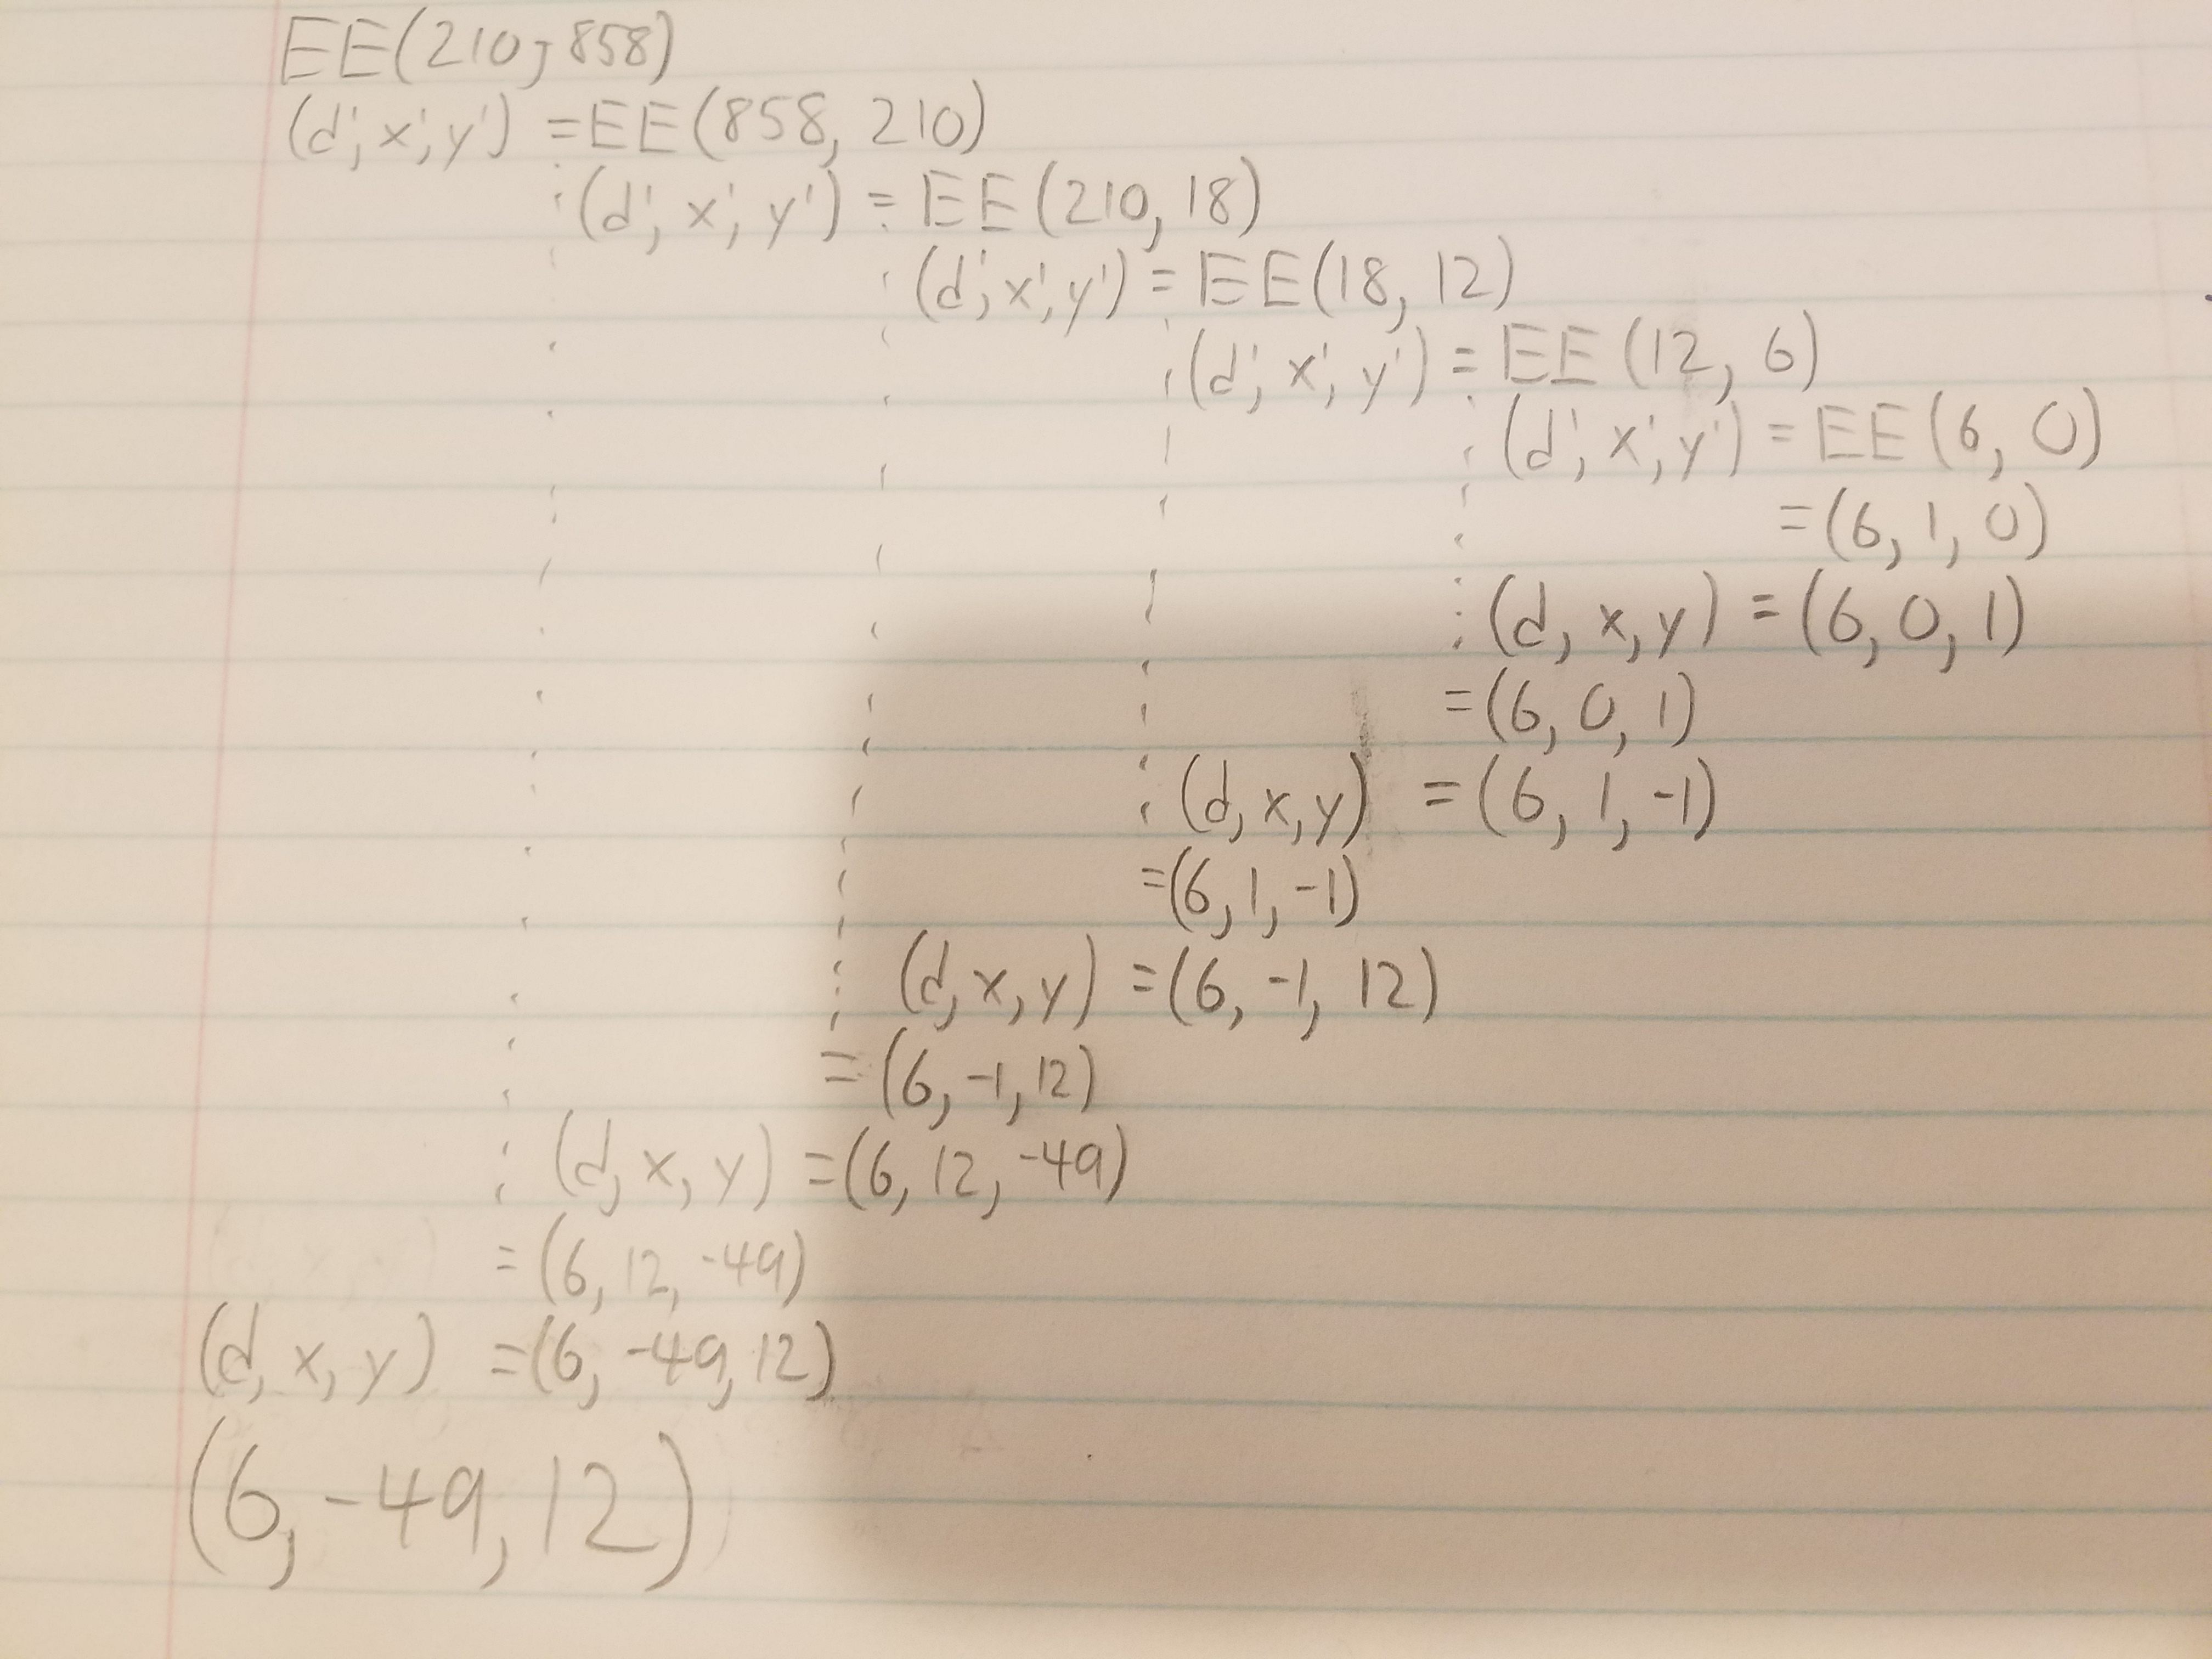 EE(210, 858)
(d', x', y') = EE(858, 210)
(d', x', y') = EE(210, 18)
(d', x', y') = EE(18, 12)
(d', x', y') = EE(12, 6)
(d', x', y') = EE(6, 0)
= (6, 1, 0)
(d, x, y) = (6, 0, 1)
= (6, 0, 1)
(d, x, y) = (6, 1, -1)
= (6, 1, -1)
(d, x, y) = (6, -1, 12)
= (6, -1, 12)
(d, x, y) = (6, 12, -49)
= (6, 12, -49)
(d, x, y) = (6, -49, 12)
(6, -49, 12)